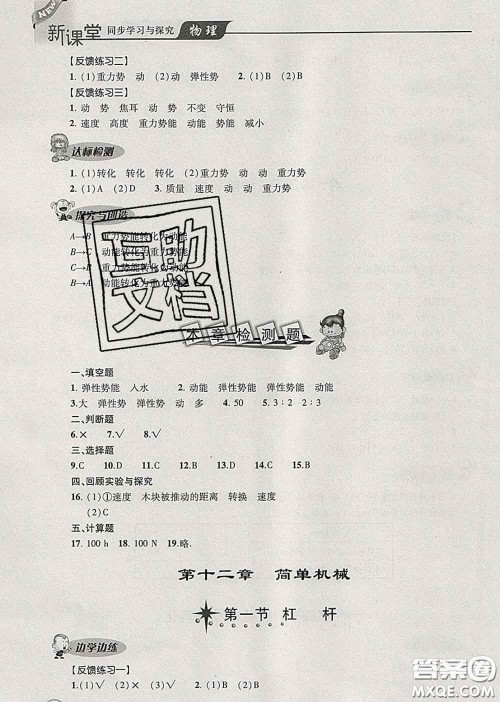 NEW
新课堂 同步学习与探究 物理
【反馈练习二】
1. (1)重力势 动 (2)动 弹性势 2. (1)B (2)B
【反馈练习三】
1. 动 势 焦耳 动 势 不变 守恒
2. 速度 高度 重力势能 动能 势能 减小
达标检测
1. (1)转化 转化 转化 (2)重力势 动 动 重力势
2. (1)A (2)D 3. 质量 速度 动 动 重力势
探究与创造
A→B 重力势能转化为动能
B→C 动能转化为重力势能
C→B 重力势能转化为动能
B→A 动能转化为重力势能
互助文档
本章检测题
一、填空题
1. 弹性势能 人水 2. 动能 弹性势能 弹性势能 动能
3. 大 弹性势 弹性势 动 多 4. 50 5. 3∶2 2∶3
二、判断题
6. × 7. √ 8. √
三、选择题
9. C 10. D 11. C 12. C 13. C 14. B 15. B
四、回顾实验与探究
16. (1)①速度 木块被推动的距离 转换 速度
(2)C
五、计算题
17. 100 h 18. 100 N 19. 略.
第十二章 简单机械
第一节 杠 杆
边学边练
【反馈练习一】
1. (1)√ (2)× (3)√ 2. (1)B (2)B
答案圈
MXQE.COM